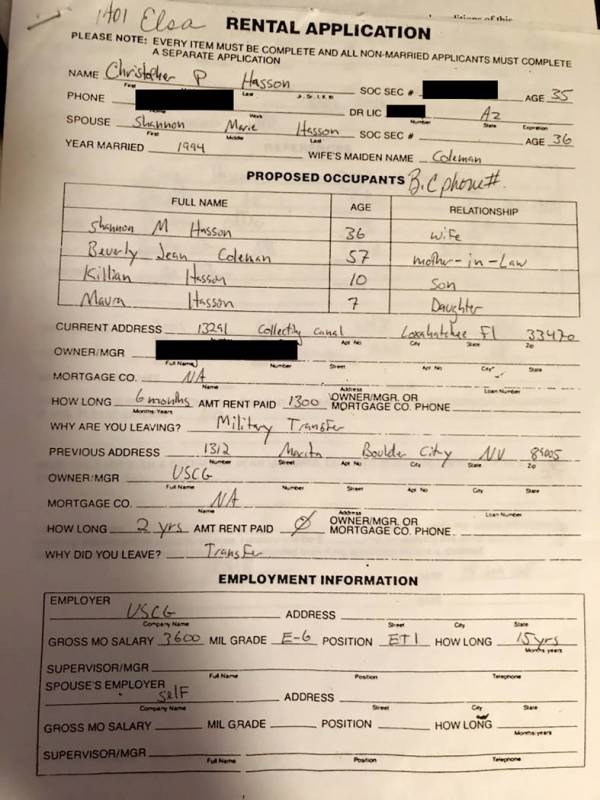 1401 Elsa
RENTAL APPLICATION
PLEASE NOTE: EVERY ITEM MUST BE COMPLETE AND ALL NON-MARRIED APPLICANTS MUST COMPLETE
A SEPARATE APPLICATION
NAME Christopher P Hasson SOC SEC # AGE 35
First Last
PHONE DR LIC Az
Home Work Number State Expiration
SPOUSE Shannon Marie Hasson SOC SEC # AGE 36
First Middle Last
YEAR MARRIED 1994 WIFE'S MAIDEN NAME Coleman
PROPOSED OCCUPANTS B.C phone#.
FULL NAME AGE RELATIONSHIP
Shannon M Hasson 36 wife
Beverly Jean Coleman 57 mother-in-Law
Killian Hasson 10 Son
Maura Hasson 7 Daughter
CURRENT ADDRESS 13291 Collecting Canal Loxahatchee Fl 33470
Apt No City State Zip
OWNER/MGR
Full Name Number Street Apt No City State
MORTGAGE CO. NA
Name Address Loan Number
HOW LONG 6 months AMT RENT PAID 1300 OWNER/MGR. OR
Months Years MORTGAGE CO. PHONE
WHY ARE YOU LEAVING? Military Transfer
PREVIOUS ADDRESS 1312 Marita Boulder City NV 89005
Number Street Apt No City State Zip
OWNER/MGR USCG
Full Name Number Street Apt No City State
MORTGAGE CO. NA
Name Address Loan Number
HOW LONG 2 yrs AMT RENT PAID Ø OWNER/MGR. OR
MORTGAGE CO. PHONE
WHY DID YOU LEAVE? Transfer
EMPLOYMENT INFORMATION
EMPLOYER USCG ADDRESS
Company Name Street City State
GROSS MO SALARY 3600 MIL GRADE E-6 POSITION ET1 HOW LONG 15 yrs
Months years
SUPERVISOR/MGR
Full Name Position Telephone
SPOUSE'S EMPLOYER self ADDRESS
Company Name Street City State
GROSS MO SALARY MIL GRADE POSITION HOW LONG
Months/years
SUPERVISOR/MGR
Full Name Position Telephone